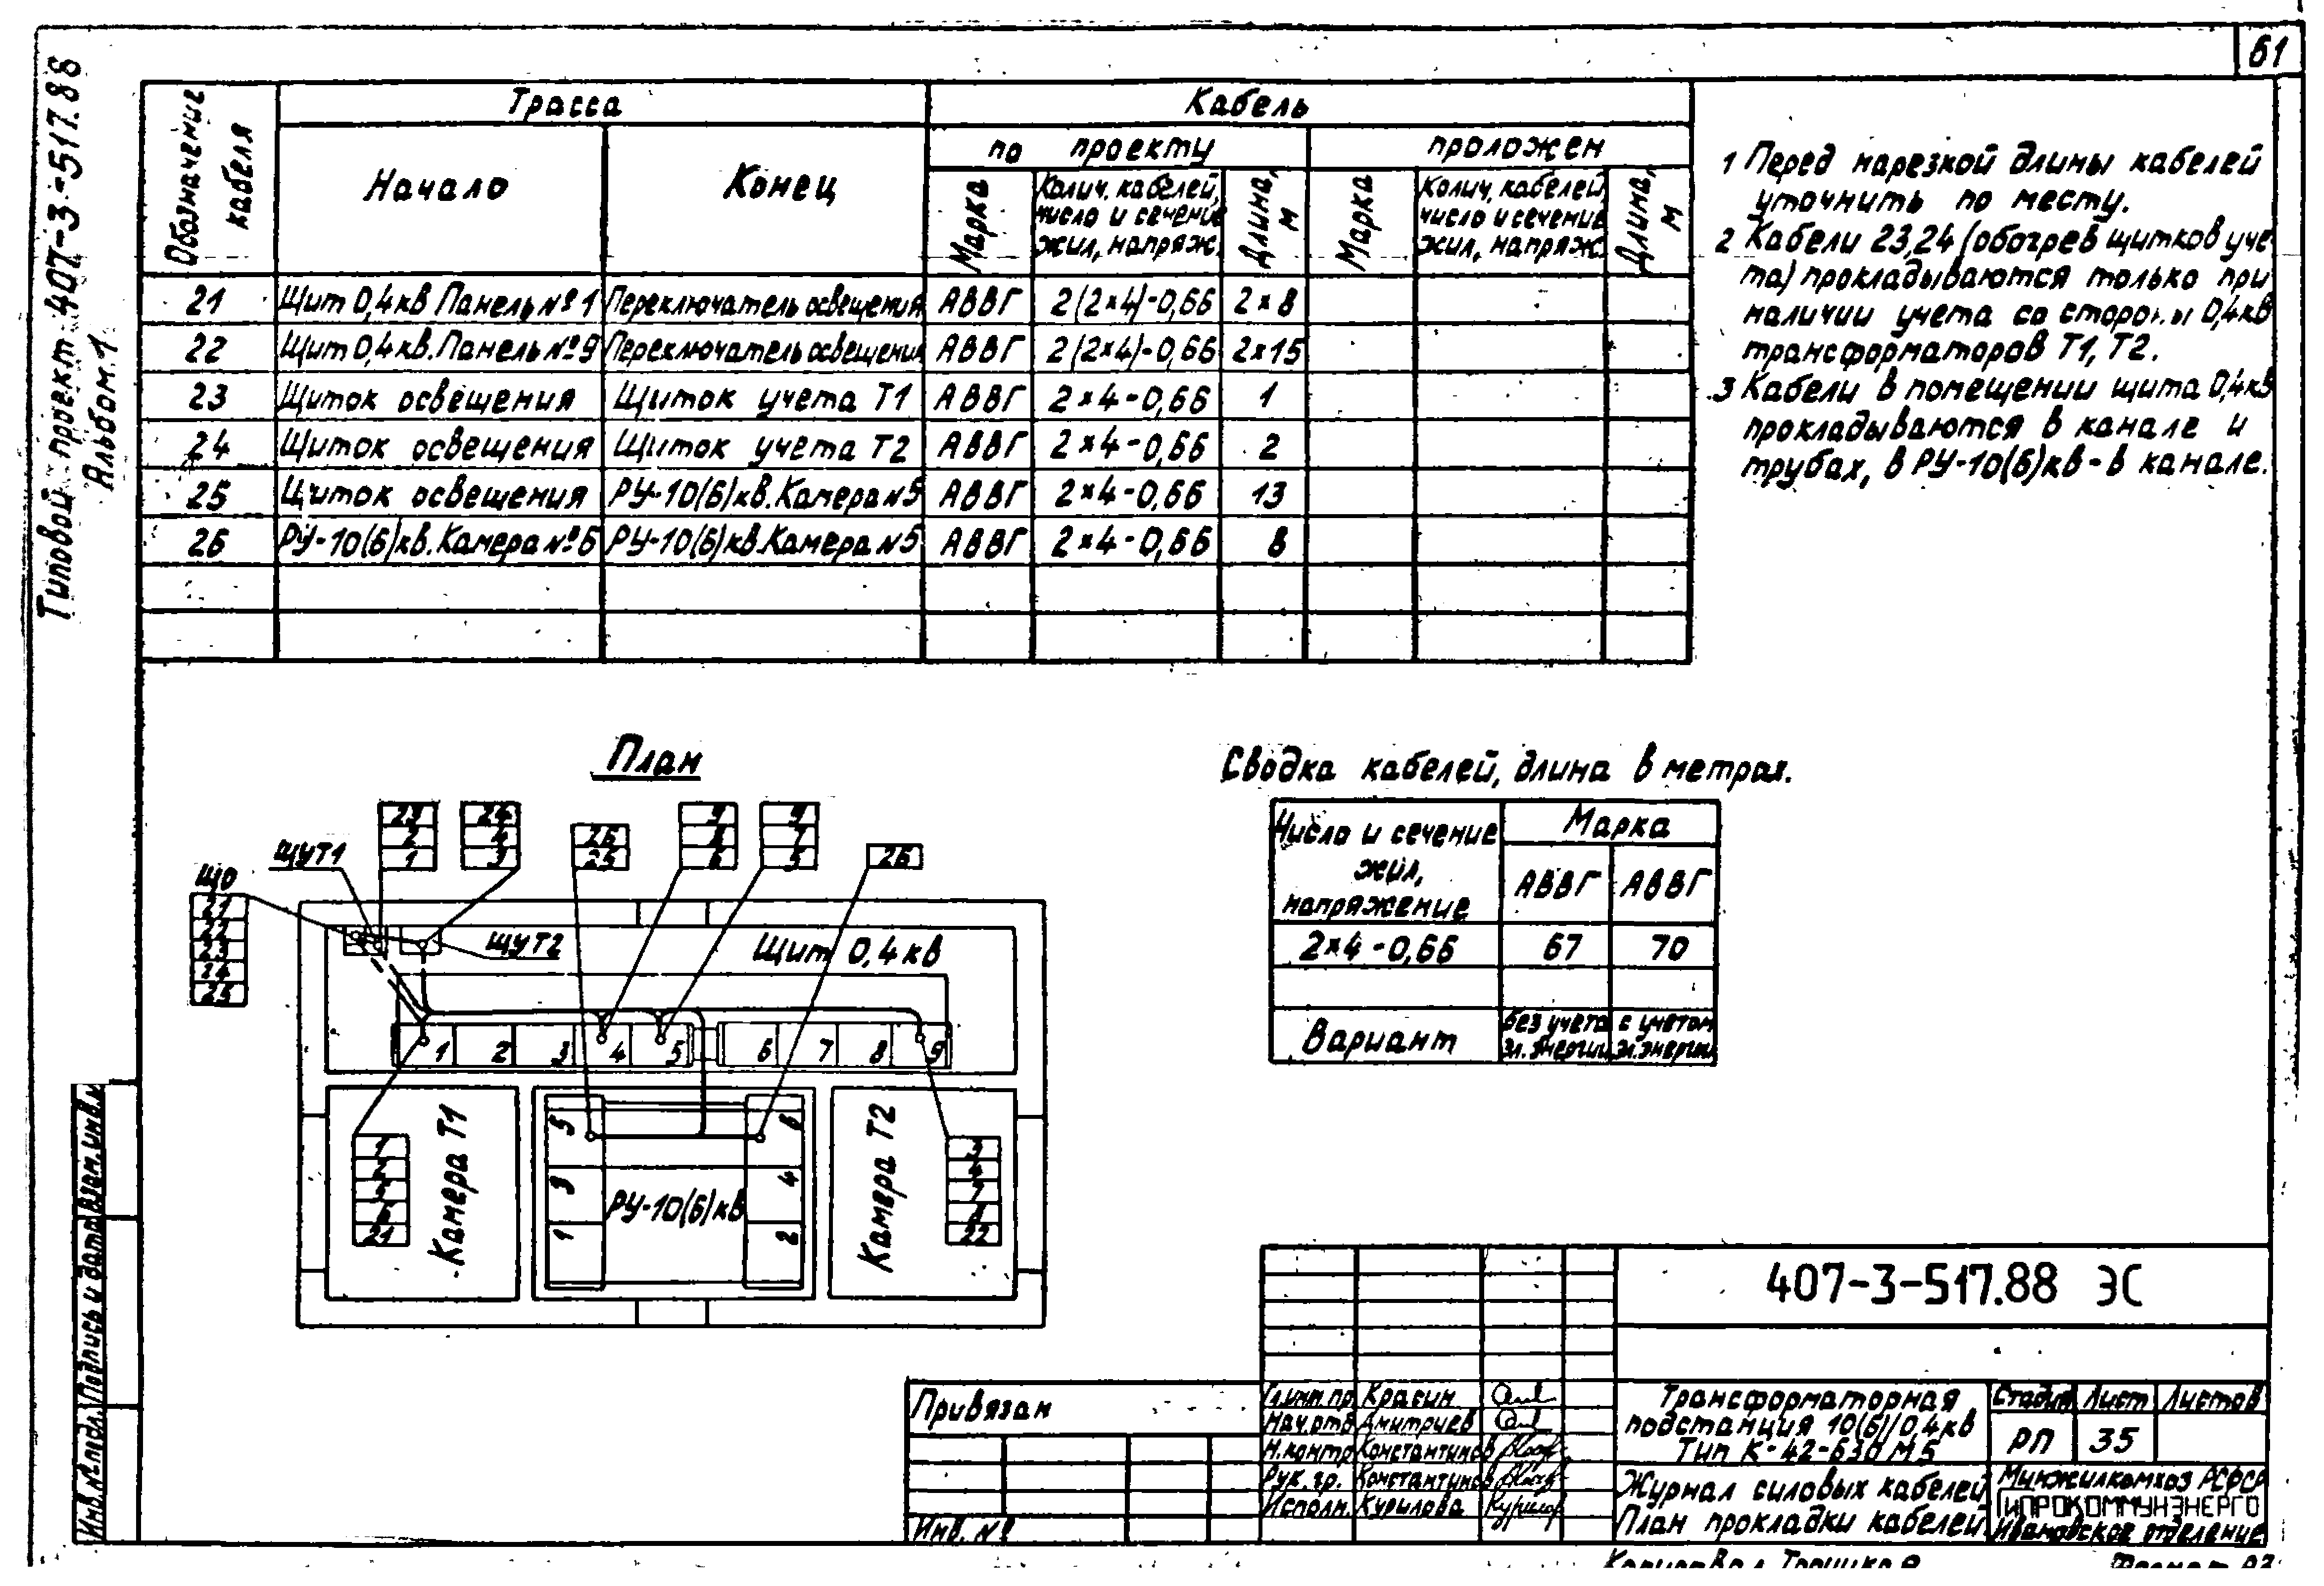 61
Типовой проект 407-3-517.88
Альбом.1
Обозначение кабеля
Трасса
Кабель
Начало
Конец
по проекту
проложен
Марка
Колич. кабелей, число и сечение жил, напряж.
Длина, м
Марка
Колич. кабелей, число и сечение жил, напряж.
Длина, м
21 Щит 0,4кв Панель №1 Переключатель освещения АВВГ 2(2×4)-0,66 2×8
22 Щит 0,4кв. Панель №9 Переключатель освещения АВВГ 2(2×4)-0,66 2×15
23 Щиток освещения Щиток учета Т1 АВВГ 2×4-0,66 1
24 Щиток освещения Щиток учета Т2 АВВГ 2×4-0,66 2
25 Щиток освещения РУ-10(6)кв. Камера №5 АВВГ 2×4-0,66 13
26 РУ-10(6)кв. Камера №6 РУ-10(6)кв. Камера №5 АВВГ 2×4-0,66 8
1 Перед нарезкой длины кабелей
уточнить по месту.
2 Кабели 23,24 (обогрев щитков уче-
та) прокладываются только при
наличии учета со стороны 0,4кв
трансформаторов Т1, Т2.
3 Кабели в помещении щита 0,4кв
прокладываются в канале и
трубах, в РУ-10(6)кв-в канале.
План
23
2
1
24
4
3
26
25
9
8
6
9
7
5
26
ЩУТ1
ЩО
21
22
23
24
25
ЩУТ2
Щит 0,4кв
1 2 3 4 5 6 7 8 9
Камера Т1
1
2
5
6
21
5
3
1
РУ-10(6)кв
6
4
2
Камера Т2
3
4
7
8
22
Сводка кабелей, длина в метрах.
Число и сечение жил, напряжение
Марка
АВВГ АВВГ
2×4-0,66 67 70
Вариант
без учета эл. энергии
с учетом эл. энергии
407-3-517.88 ЭС
Привязан
Инв. №
Гл.инж.пр. Красин
Нач.отд. Дмитриев
Н.контр. Константинов
Рук. гр. Константинов
Исполн. Курилова
Трансформаторная
подстанция 10(6)/0,4кв
Тип К-42-630 М5
Стадия Лист Листов
РП 35
Журнал силовых кабелей
План прокладки кабелей.
Минжилкомхоз РСФСР
ГИПРОКОММУНЭНЕРГО
Ивановское отделение
Инв.№ подл. Подпись и дата Взам.инв.№